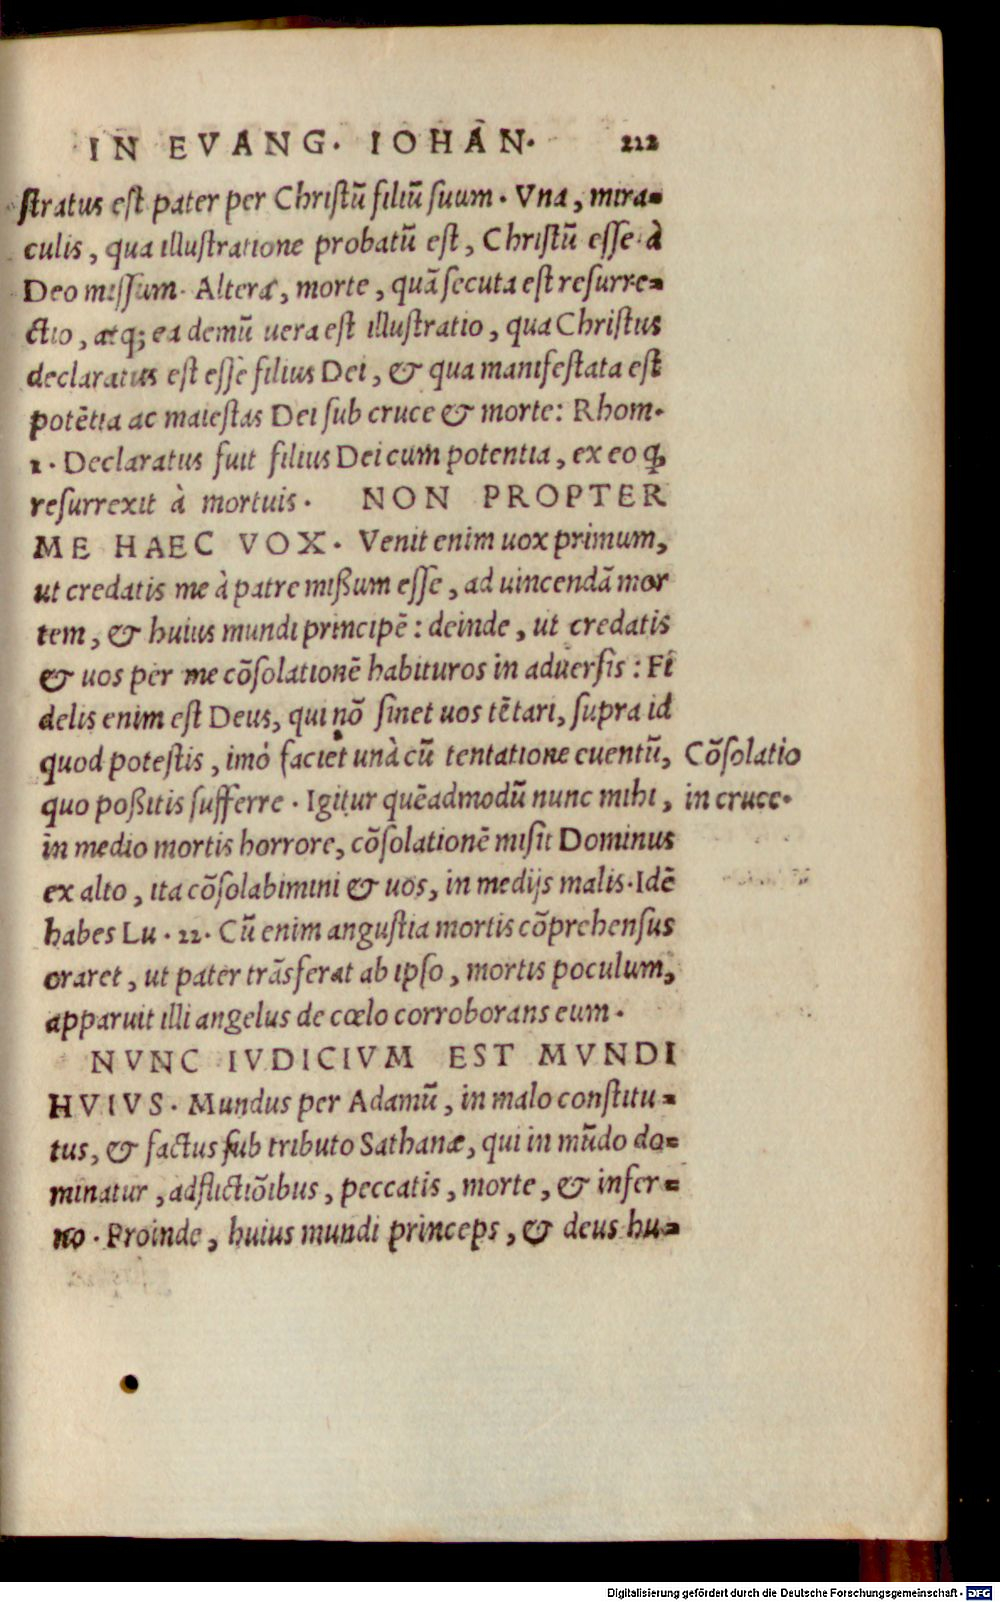 IN EVANG. IOHAN. 212
stratus est pater per Christū filiū suum. Vna, mira=
culis, qua illustratione probatū est, Christū esse à
Deo missum. Altera, morte, quā secuta est resurre=
ctio, atq; ea demū uera est illustratio, qua Christus
declaratus est esse filius Dei, & qua manifestata est
potētia ac maiestas Dei sub cruce & morte: Rhom.
1. Declaratus fuit filius Dei cum potentia, ex eo q̧
resurrexit à mortuis. NON PROPTER
ME HAEC VOX. Venit enim uox primum,
ut credatis me à patre mißum esse, ad uincendā mor
tem, & huius mundi principē: deinde, ut credatis
& uos per me cōsolationē habituros in aduersis: Fi
delis enim est Deus, qui nō sinet uos tētari, supra id
quod potestis, imò faciet unà cū tentatione euentū,
quo poßitis sufferre. Igitur quēadmodū nunc mihi,
in medio mortis horrore, cōsolationē misit Dominus
ex alto, ita cōsolabimini & uos, in medijs malis. Idē
habes Lu. 22. Cū enim angustia mortis cōprehensus
oraret, ut pater trāsferat ab ipso, mortis poculum,
apparuit illi angelus de cœlo corroborans eum.
NVNC IVDICIVM EST MVNDI
HVIVS. Mundus per Adamū, in malo constitu=
tus, & factus sub tributo Sathanæ, qui in mūdo do=
minatur, adflictiōibus, peccatis, morte, & infer=
no. Proinde, huius mundi princeps, & deus hu=
Cōsolatio
in cruce.
Digitalisierung gefördert durch die Deutsche Forschungsgemeinschaft - DFG